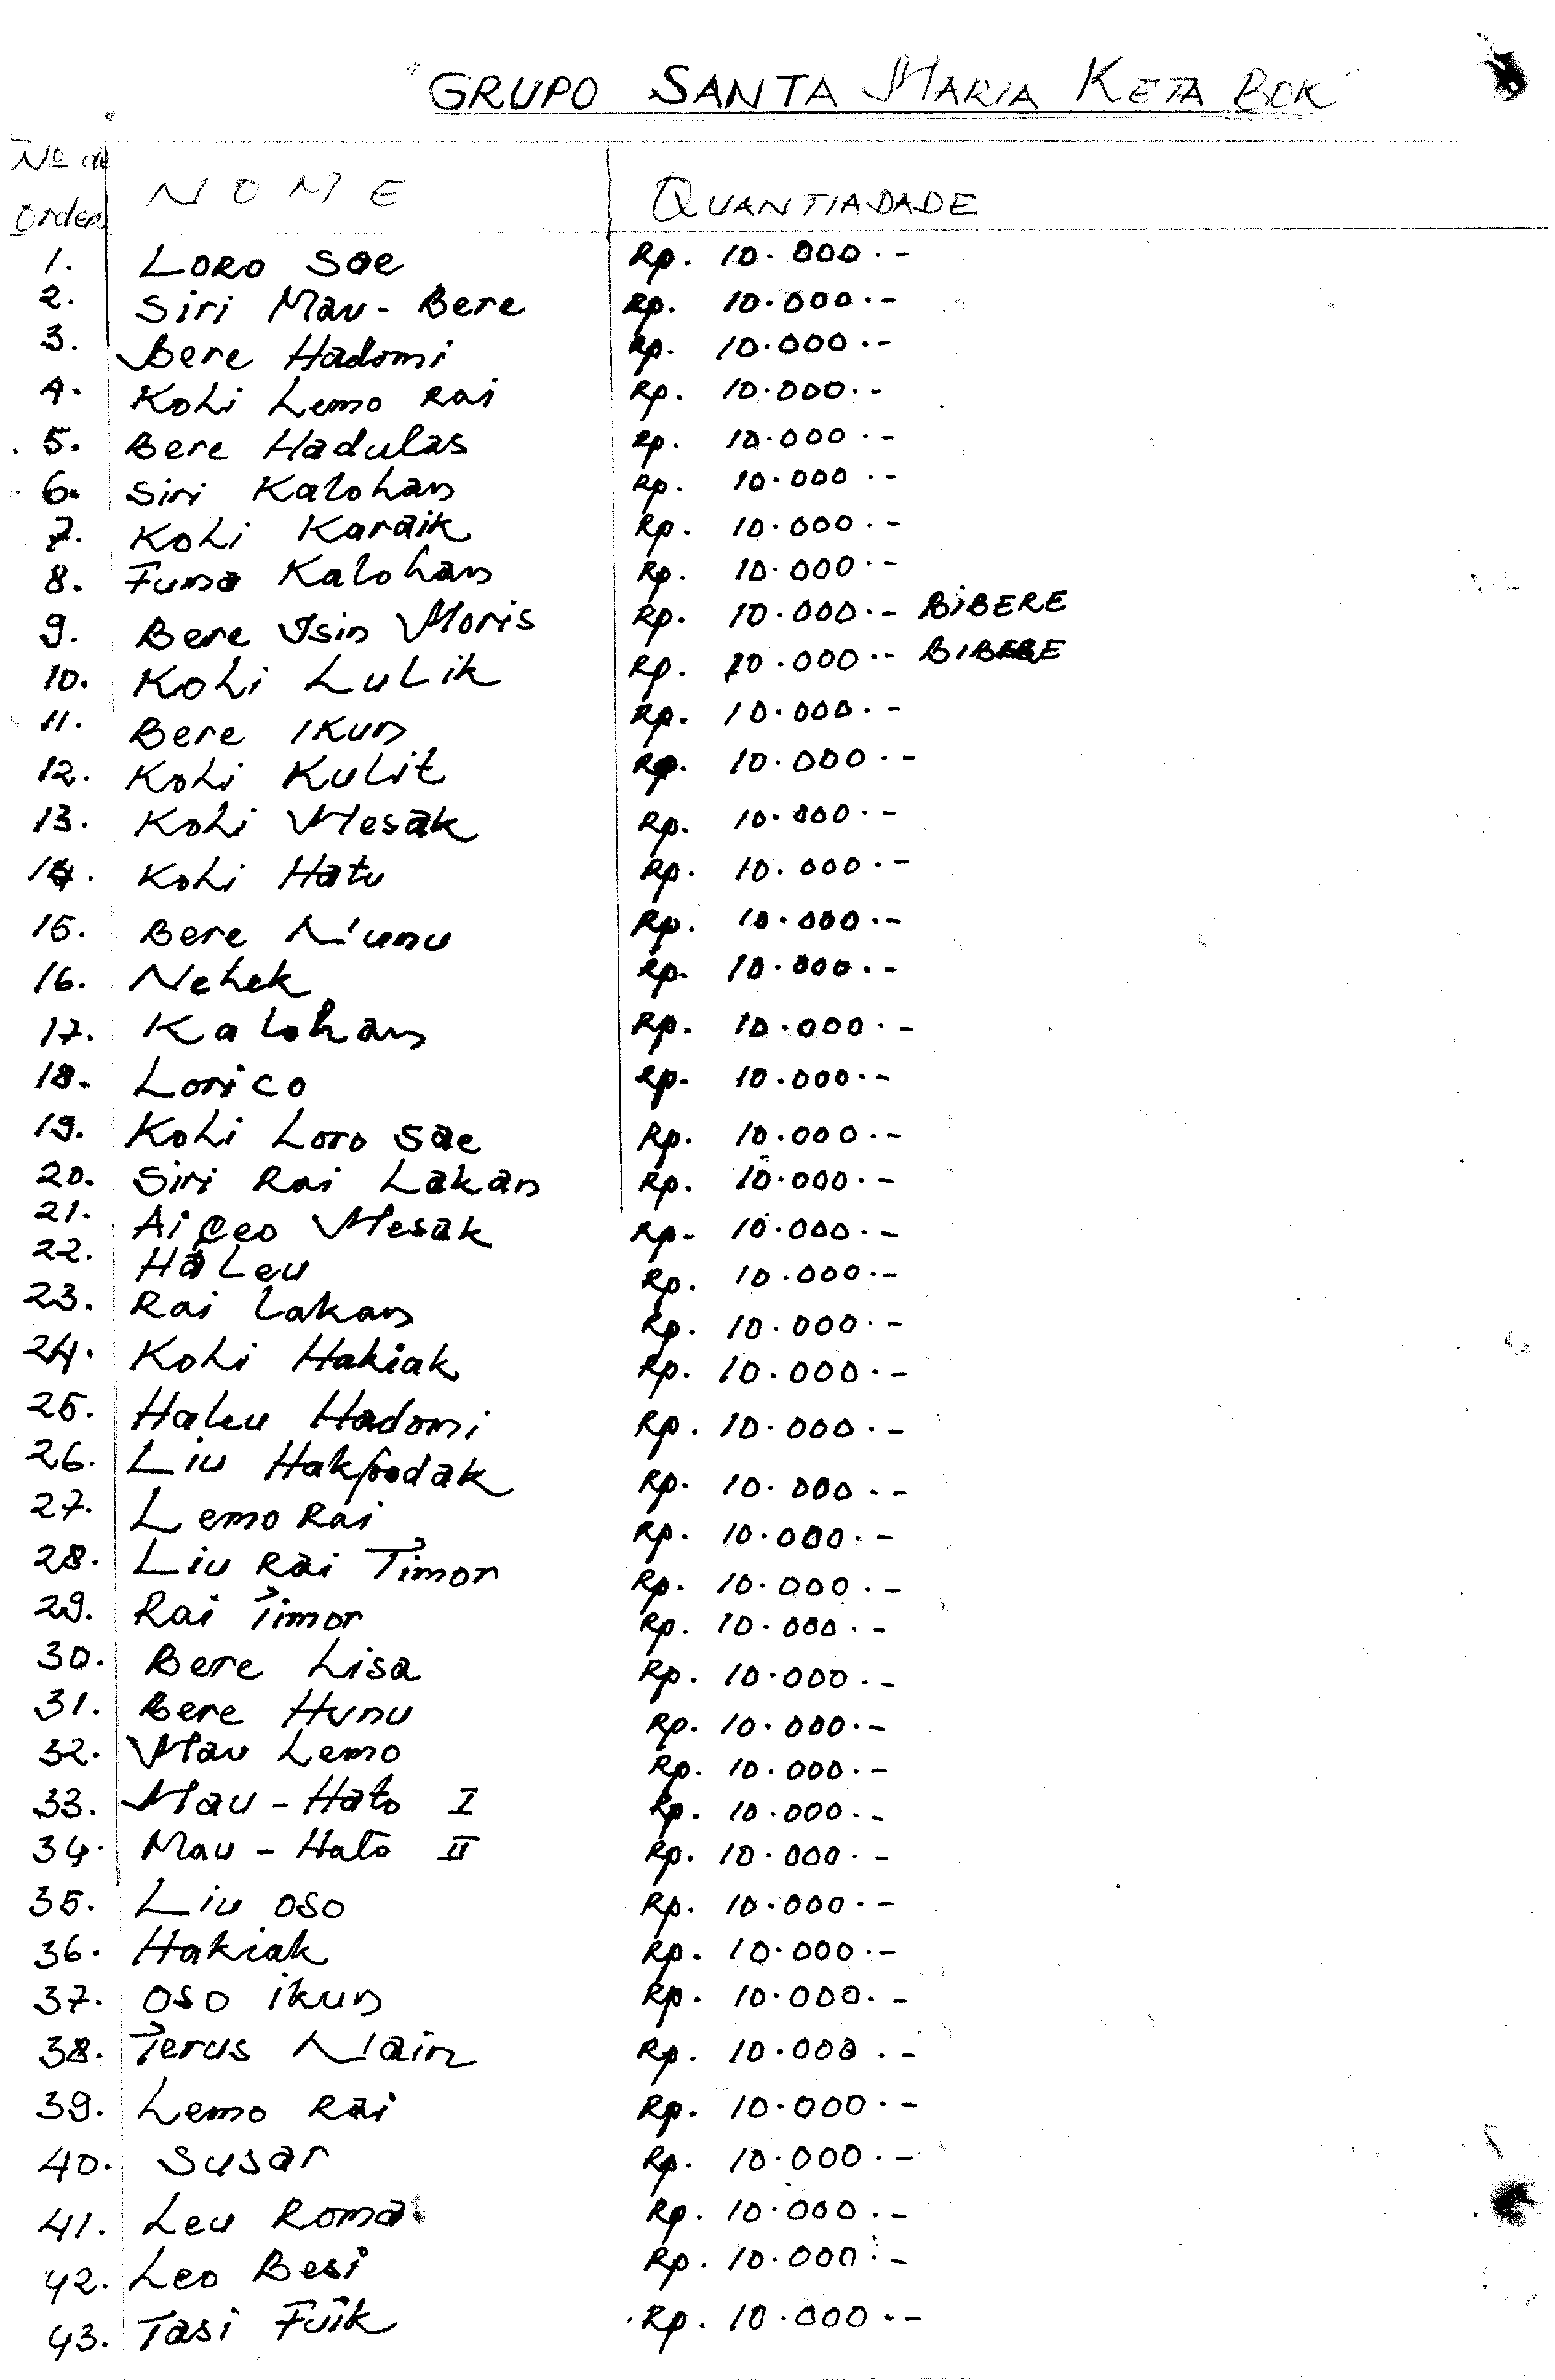 "GRUPO SANTA MARIA KETA BOK"
Nº de Orden NOME QUANTIADADE
1. LORO Sae Rp. 10.000.-
2. Siri Mau-Bere Rp. 10.000.-
3. Bere Hadomi Rp. 10.000.-
4. Kohi Lemo Rai Rp. 10.000.-
5. Bere Hadulas Rp. 10.000.-
6. Siri Kalohan Rp. 10.000.-
7. Kohi Karaik Rp. 10.000.-
8. Funa Kalohan Rp. 10.000.-
9. Bere Isin Moris Rp. 10.000.- BIBERE
10. Kohi Lulik Rp. 10.000.- BIBERE
11. Bere Ikun Rp. 10.000.-
12. Kohi Kulit Rp. 10.000.-
13. Kohi Mesak Rp. 10.000.-
14. Kohi Hatu Rp. 10.000.-
15. Bere N'unu Rp. 10.000.-
16. Nehek Rp. 10.000.-
17. Kalohan Rp. 10.000.-
18. Lorico Rp. 10.000.-
19. Kohi Loro Sae Rp. 10.000.-
20. Siri Rai Lakan Rp. 10.000.-
21. Ai Mesak Rp. 10.000.-
22. Haleu Rp. 10.000.-
23. Rai Lakan Rp. 10.000.-
24. Kohi Hakiak Rp. 10.000.-
25. Haleu Hadomi Rp. 10.000.-
26. Liu Rp. 10.000.-
27. Lemo Rai Rp. 10.000.-
28. Liu Rai Timor Rp. 10.000.-
29. Rai Timor Rp. 10.000.-
30. Bere Lisa Rp. 10.000.-
31. Bere Hunu Rp. 10.000.-
32. Mau Lemo Rp. 10.000.-
33. Mau-Hato I Rp. 10.000.-
34. Mau-Hato II Rp. 10.000.-
35. Liu oso Rp. 10.000.-
36. Hakiak Rp. 10.000.-
37. oso ikun Rp. 10.000.-
38. Terus Nain Rp. 10.000.-
39. Lemo Rai Rp. 10.000.-
40. Susar Rp. 10.000.-
41. Leu Roma Rp. 10.000.-
42. Leo Besi Rp. 10.000.-
43. Tasi Fuik Rp. 10.000.-